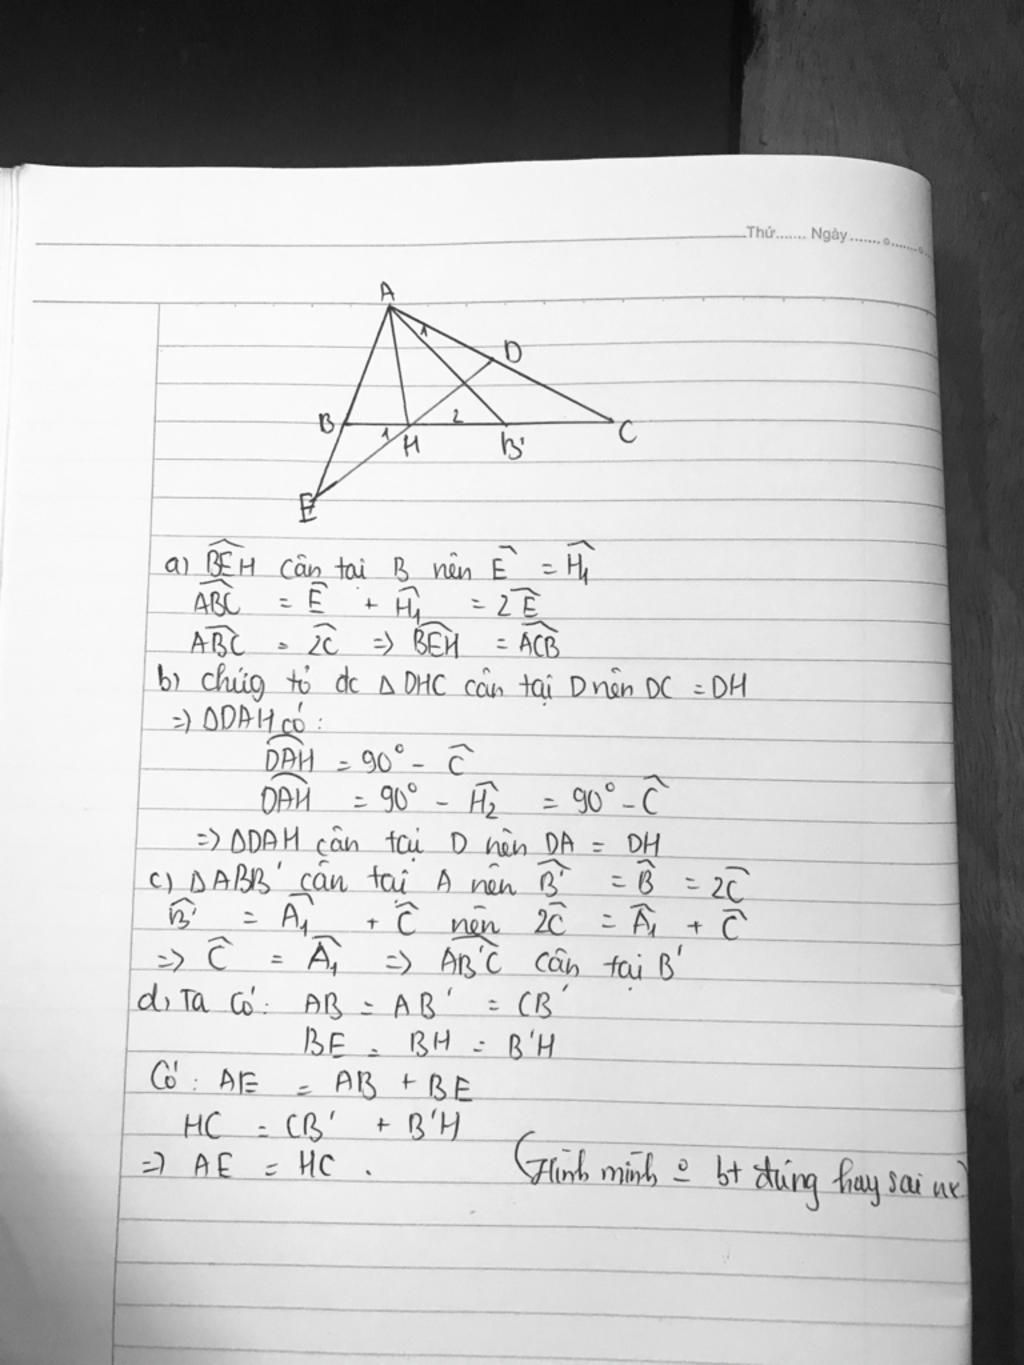 Thứ....... Ngày.......
A
1
D
B
1
H
2
B'
C
E
a) BEH cân tai B nên E = H₁
ABC = E + H₁ = 2E
ABC = 2C => BEH = ACB
b) chứg tỏ đc Δ DHC cân tại D nên DC = DH
=> ΔDAH có :
DAH = 90° - C
DAH = 90° - H₂ = 90° - C
=> ΔDAH cân tại D nên DA = DH
c) ΔABB' cân tại A nên B' = B = 2C
B' = A₁ + C nên 2C = A₁ + C
=> C = A₁ => AB'C cân tại B'
d) Ta có : AB = AB' = CB'
BE = BH = B'H
Có : AE = AB + BE
HC = CB' + B'H
=> AE = HC .
(Hình mình bt đúng hay sai